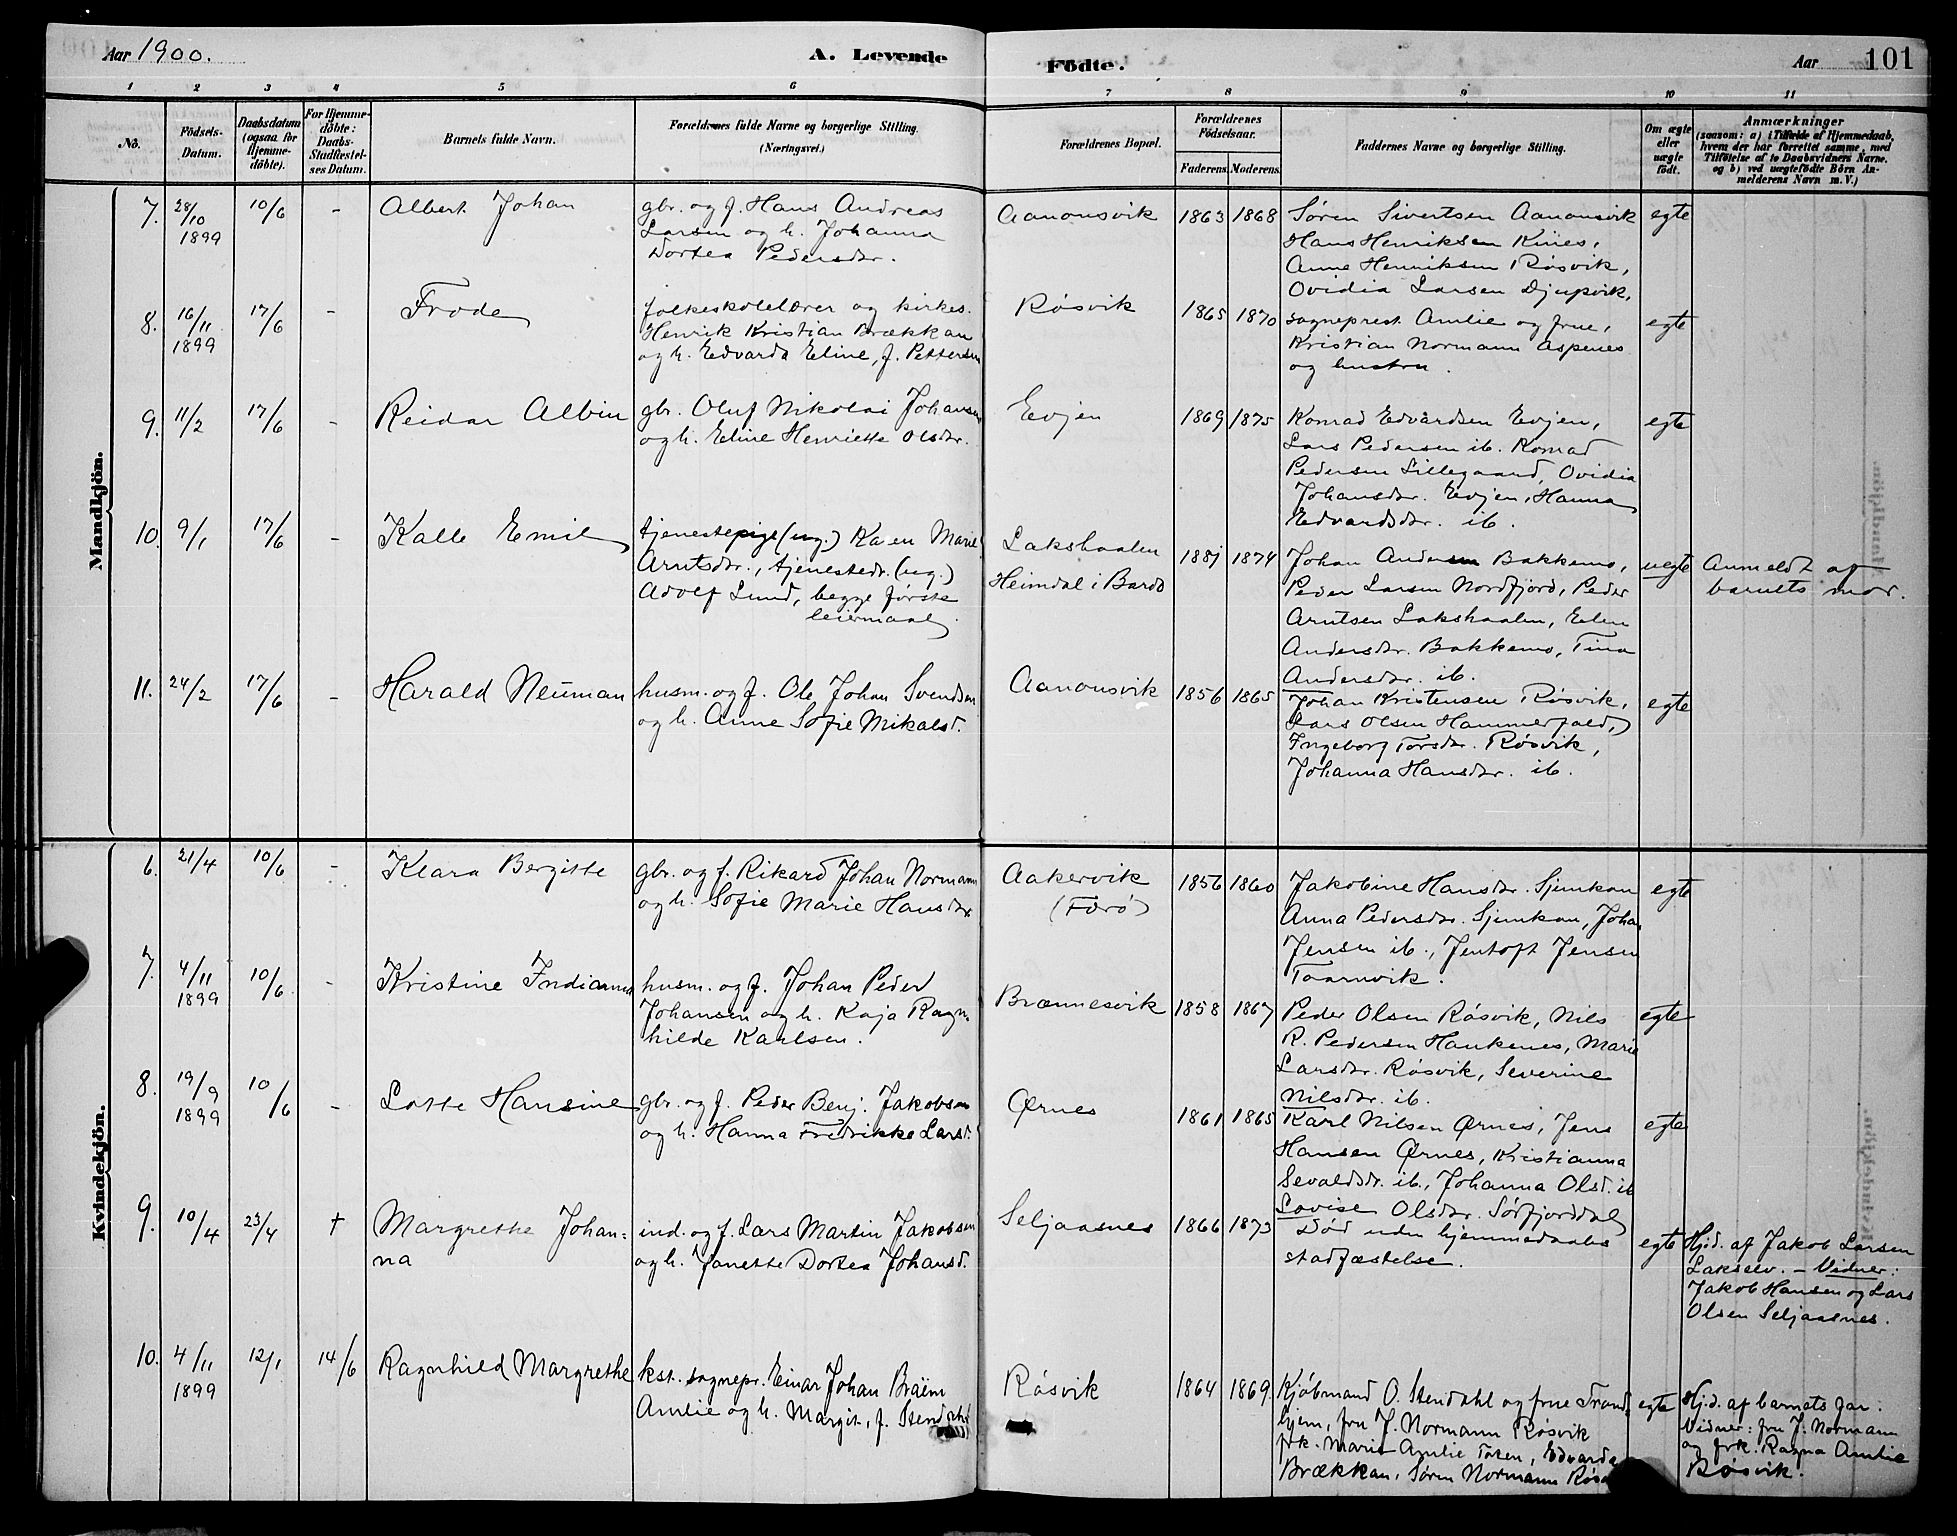 Aar 1900.
A. Levende
Födte.
Aar
101
1 2 3 4 5 6 7 8 9 10 11
No.
Födsels-
Datum.
Daabsdatum
(ogsaa for
Hjemme-
döbte).
For Hjemme-
döbte:
Daabs-
Stadfæstel-
ses Datum.
Barnets fulde Navn.
Forældrenes fulde Navne og borgerlige Stilling.
(Næringsvei.)
Forældrenes Bopæl.
Forældrenes
Födselsaar.
Faderens. Moderens.
Faddernes Navne og borgerlige Stilling.
Om ægte
eller
uægte
födt.
Anmærkninger
(saasom: a) i Tilfælde af Hjemmedaab,
hvem der har forrettet samme, med
Tilföielse af to Daabsvidners Navne.
og b) ved uægtefödte Börn An-
melderens Navn m.V.)
Mandkjön.
7. 28/10 1899 10/6 - Albert Johan
gbr. og f. Hans Andreas
Larsen og h. Johanna
Dortea Pedersdr.
Aanonsvik 1863 1868
Søren Sivertsen Aanonsvik
Hans Henriksen Kines,
Anne Henriksen Røsvik,
Ovidia Larsen Djupvik,
egte
8. 16/11 1899 17/6 - Frode
folkeskolelærer og kirkes.
Henrik Kristian Brækkan
og h. Edvarda Eline, f. Pettersen
Røsvik 1865 1870
sogneprest Amlie og frue,
Kristian Normann Aspenes
og hustru.
egte
9. 11/2 17/6 - Reidar Albin
gbr. Oluf Nikolai Johansen
og h. Eline Henriette Olsdr.
Evjen 1869 1875
Konrad Edvardsen Evjen,
Lars Pedersen ib. Konrad
Pedersen Lillegaard, Ovidia
Johansdr. Evjen, Hanna
Edvardsdr. ib.
egte
10. 9/1 17/6 - Kalle Emil
tjenestepige (ug.) Karen Marie
Arntsdr., tjenestedr. (ug.)
Adolf Lund, begge første
leiermaal
Lakshaalen
Heimdal i Bardo
1881 1874
Johan Andersen Bakkemo,
Peder Larsen Nordfjord, Peder
Arntsen Lakshaalen, Elen
Andersdr. Bakkemo, Tina
Andersdr. ib.
uegte
Anmeldt af
barnets mor.
11. 24/2 17/6 - Harald Neuman
husm. og f. Ole Johan Svendsen
og h. Anne Sofie Mikalsd.
Aanonsvik 1856 1865
Johan Kristensen Røsvik,
Lars Olsen Hammerfald,
Ingeborg Torsdr. Røsvik,
Johanna Hansdr. ib.
egte
Kvindekjön.
6. 21/4 10/6 - Klara Bergitte
gbr. og f. Rikard Johan Normann
og h. Sofie Marie Hansdr.
Aakervik
(Færø)
1856 1860
Jakobine Hansdr. Sjunkan
Anna Pedersdr. Sjunkan, Johan
Jensen ib., Jentoft Jensen
Taarnvik.
egte
7. 4/11 1899 10/6 - Kristine Indianna
husm. og f. Johan Peder
Johansen og h. Kaja Ragn-
hilde Karlsen.
Brænnesvik 1858 1867
Peder Olsen Røsvik, Nils
R. Pedersen Haukenes, Marie
Larsdr. Røsvik, Severine
Nilsdr. ib.
egte
8. 19/9 1899 10/6 - Lotte Hansine
gbr. og f. Peder Benj. Jakobsen
og h. Hanna Fredrikke Larsd.
Ørnes 1861 1865
Karl Nilsen Ørnes, Jens
Hansen Ørnes, Kristianna
Sevaldsdr. ib., Johanna Olsd. ib
Lovise Olsdr. Sørfjorddal
egte
9. 10/4 23/4 † Margrethe Johan-
na
ind. og f. Lars Martin Jakobsen
og h. Janette Dortea Johansd.
Seljaasnes 1866 1873
Død uden hjemmedaabs
stadfæstelse.
egte
Hjd. af Jakob Larsen
Lakselv. - Vidner:
Jakob Hansen og Lars
Olsen Seljaasnes.
10. 4/11 1899 12/1 14/6 Ragnhild Margrethe
kst. sognepr. Einar Johan Braëm
Amlie og h. Margit, f. Stendahl
Røsvik 1864 1869.
Kjøbmand O. Stendahl og frue Trond-
hjem, fru J. Normann Røsvik
frk. Marie Amlie Toten, Edvarda
Brækkan, Søren Normann Røsv
egte
Hjd. af barnets far:
Vidner: fru J. Normann
og frk. Ragna Amlie
Røsvik.